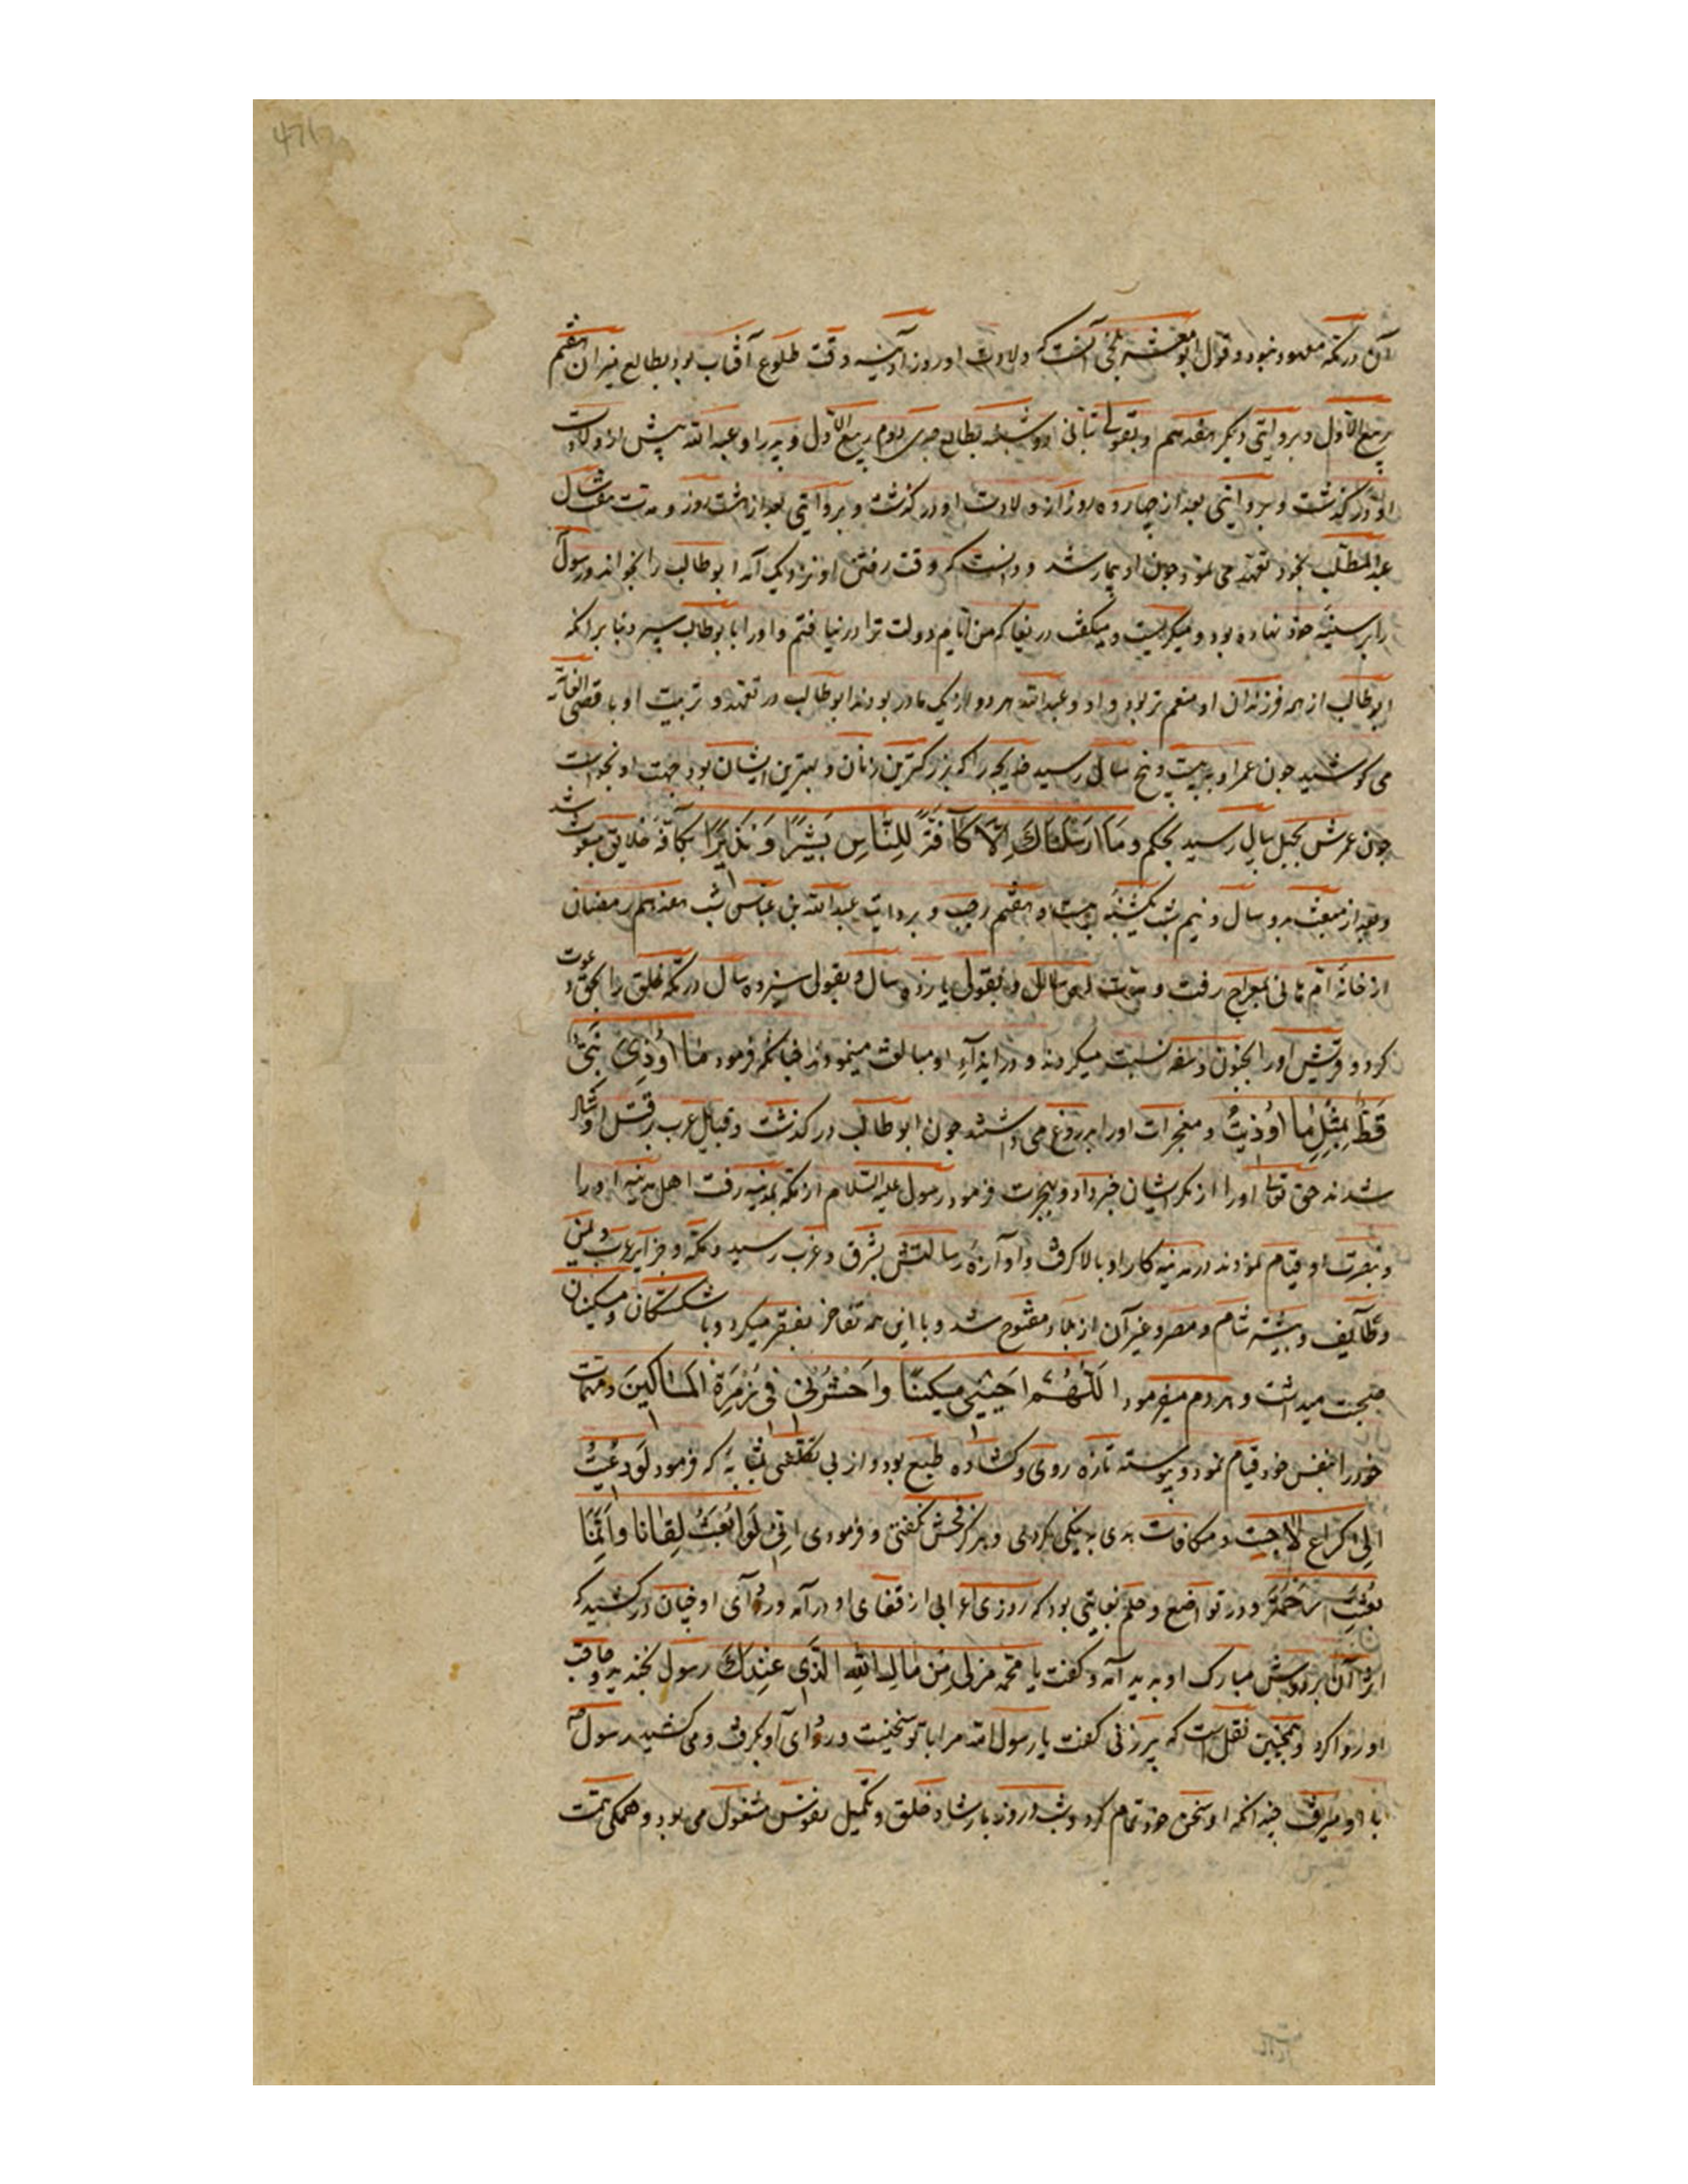 آن در مکه معهود نبود و قول ابو معشر بلخی آنست که ولادت او روز آدینه وقت طلوع آفتاب بود بطالع میزان هفتم
ربیع الاول و بروایتی دیگر هفدهم و بقول بتانی دوشنبه بطالع جدی دوم ربیع الاول و پدر او عبدالله پیش از ولادت
او در کذشت و بروایتی بعد از چهارده روز از ولادت او در کذشت و بروایتی بعد از شت روز و مدت هفت سال
عبدالمطلب بخود تعهد می نمود جون او بیمار شد و دانست که وقت رفتن او نزدیک آمد ابوطالب را بخواند و رسول
را بر سینه خود نهاده بود و میکریست و میکفت دریغا که من ایام دولت ترا در نیافتم و اورا با بوطالب سپرد بنا بر انکه
ابوطالب از همه فرزندان او منعم تر بود و او و عبدالله هر دو از یک مادر بودند ابوطالب در تعهد و تربیت او باقصی الغایة
می کوشید جون عمر او به بیست و پنج سال رسید خدیجه را که بزرکترین زنان و بهترین ایشان بود جهت او بخواست
جون عمرش بجهل سال رسید بحکم وما ارسلناك الا كافة للناس بشيرًا ونذيرًا بکافه خلایق مبعوث شد
و بعد از مبعث بدو سال و نیم شب یکشنبه بیست و هفتم رجب و بروایت عبدالله بن عباس شب هفدهم رمضان
از خانه ام هانی بمعراج رفت و مدت سال و بقولی یازده سال و بقولی سیزده سال در مکه خلق را بحق دعوت
کرد و قریش اورا بجنون و سفه نسبت میکردند و در ایذآء او مبالغت مینمودند چنانکه فرمود ما اُوذِی نَبِیٌّ
قَطُّ بِمِثْلِ ما اُوذیتُ و معجزات اورا بر دروغ می داشتند جون ابوطالب در کذشت و قبایل عرب بر قتل او یکبار
شدند حق تعالی اورا از مکر ایشان خبر داد و بهجرت فرمود رسول علیه السلام از مکه بمدینه رفت اهل مدینه اورا
و بنصرت او قیام نمودند در مدینه کار او بالا کرفت و آوازهٔ رسالتش بشرق و غرب رسید و مکه و جزایر عرب و یمن
و طایف و بیشتر شام و مصر و غیر آن از بلاد مفتوح شد و با این همه تفاخر بفقر میکرد و با شکستکان و مسکینان
صحبت میداشت و هر دم میفرمود اللهم احیینی مسکینًا واحشرنی فی زمرة المساکین و مهمات
خود را بنفس خود قیام نمود و پیوسته تازه روی و کشاده طبع بود و از بی تکلفی بمثابهٔ که فرمود لو دعیتُ
الی کراع لاجبت و مکافات بدی به نیکی کردی و هرکز فحش نکفتی و فرمودی انی لم ابعث لعّانا وانما
بعثت رحمة و در تواضع و حلم بغایتی بود که روزی اعرابی از قفای او در آمد و ردآی او چنان در کشید که
اثر آن بر دوش مبارک او پدید آمد و کفت یا محمد مر لی من مال الله الذی عندك رسول بخندید و حاجت
او روا کرد و همچنین نقلست که پیرزنی کفت یا رسول الله مرا با تو سخنیست و ردآی او بکرفت و می کشید رسول
با او میرفت چندانکه او سخن خود تمام کرد و شب و روز بارشاد خلق و تکمیل نفوس مشغول می بود و همکی همت